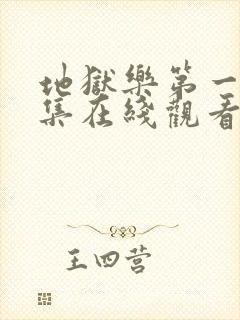 地獄樂第一
集在綫觀看
王四营